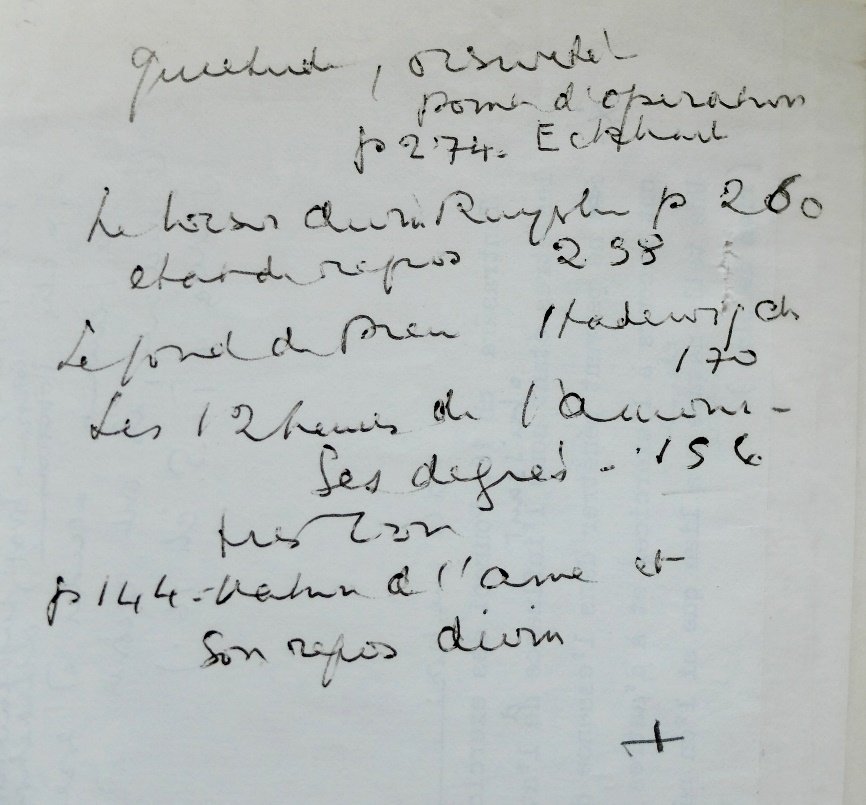 quietude, oisiveté
point d'operation
p 274. Eckhart
Le loisir divin Ruysbr p 260
etat de repos 298
Le fond de Dieu Hadewijch
170
Les 12 heures de l'amour -
Ses degrés - 156
tres bon
p 144 - nature de l'ame et
Son repos divin
+